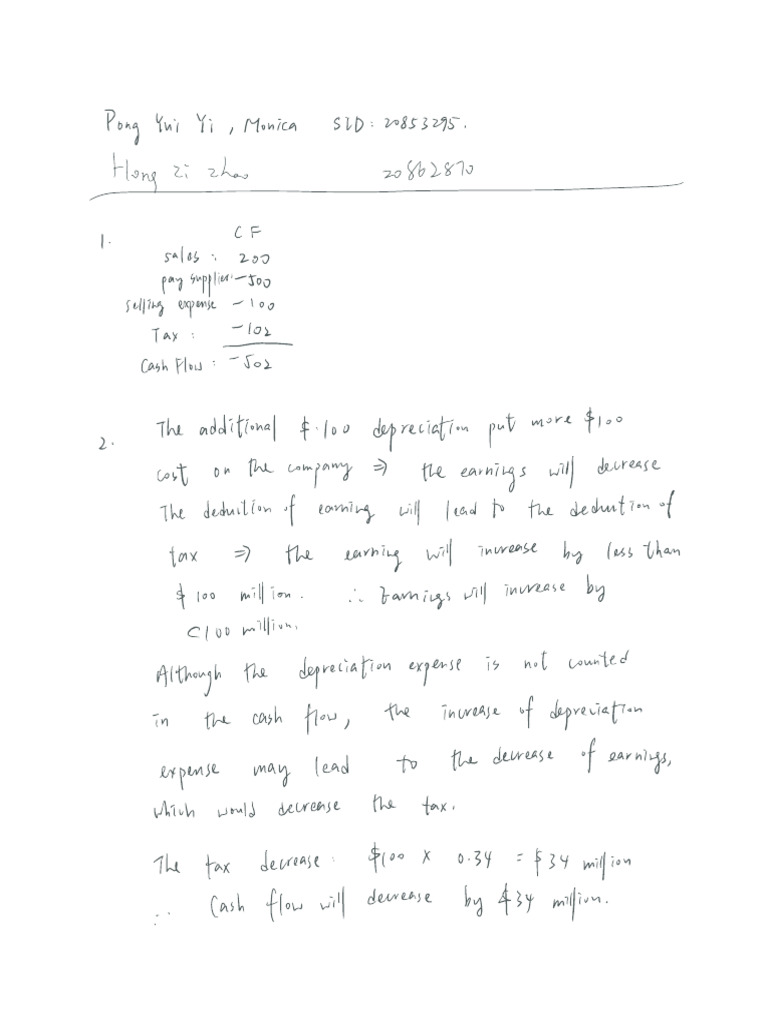 Pong Yui Yi, Monica SID: 20853295.
Hong Zi Zhao 20862870
1. CF
sales: 200
pay supplier: -500
selling expense -100
Tax: -102
Cash Flow: -502
2. The additional $100 depreciation put more $100
cost on the company ⇒ the earnings will decrease
The deduction of earning will lead to the deduction of
tax ⇒ the earning will increase by less than
$100 million. ∴ Earnings will increase by
<100 million.
Although the depreciation expense is not counted
in the cash flow, the increase of depreciation
expense may lead to the decrease of earnings,
which would decrease the tax.
The tax decrease: $100 x 0.34 = $34 million
∴ Cash flow will decrease by $34 million.